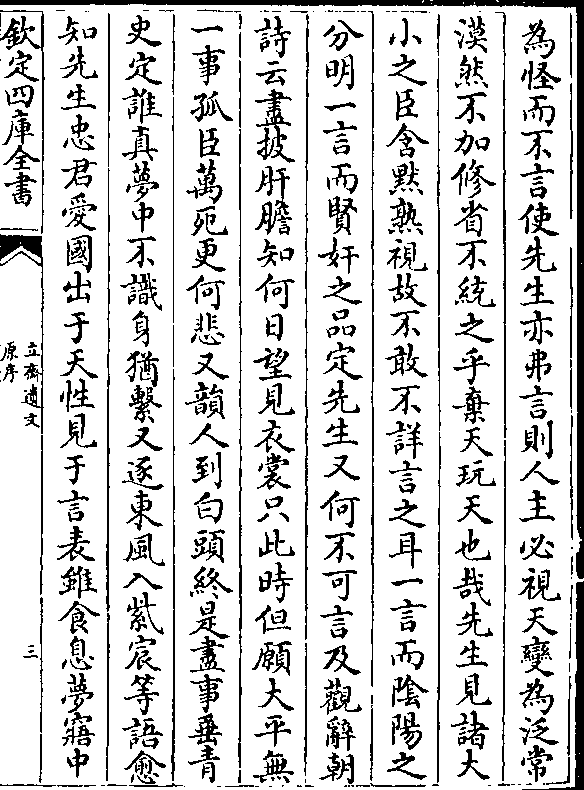 為怪而不言使先生亦弗言則人主必視天變為泛常
漠然不加修省不統之乎棄天玩天也哉先生見諸大
小之臣含默熟視故不敢不詳言之耳一言而陰陽之
分明一言而賢奸之品定先生又何不可言及觀辭朝
詩云盡披肝膽知何日望見衣裳只此時但願大平無
一事孤臣萬死更何悲又韻人到白頭終是盡事垂青
史定誰真夢中不識身猶繫又逐東風入紫宸等語愈
知先生忠君愛國出于天性見于言表雖食息夢寤中
欽定四庫全書
立齋遺文
原序
三